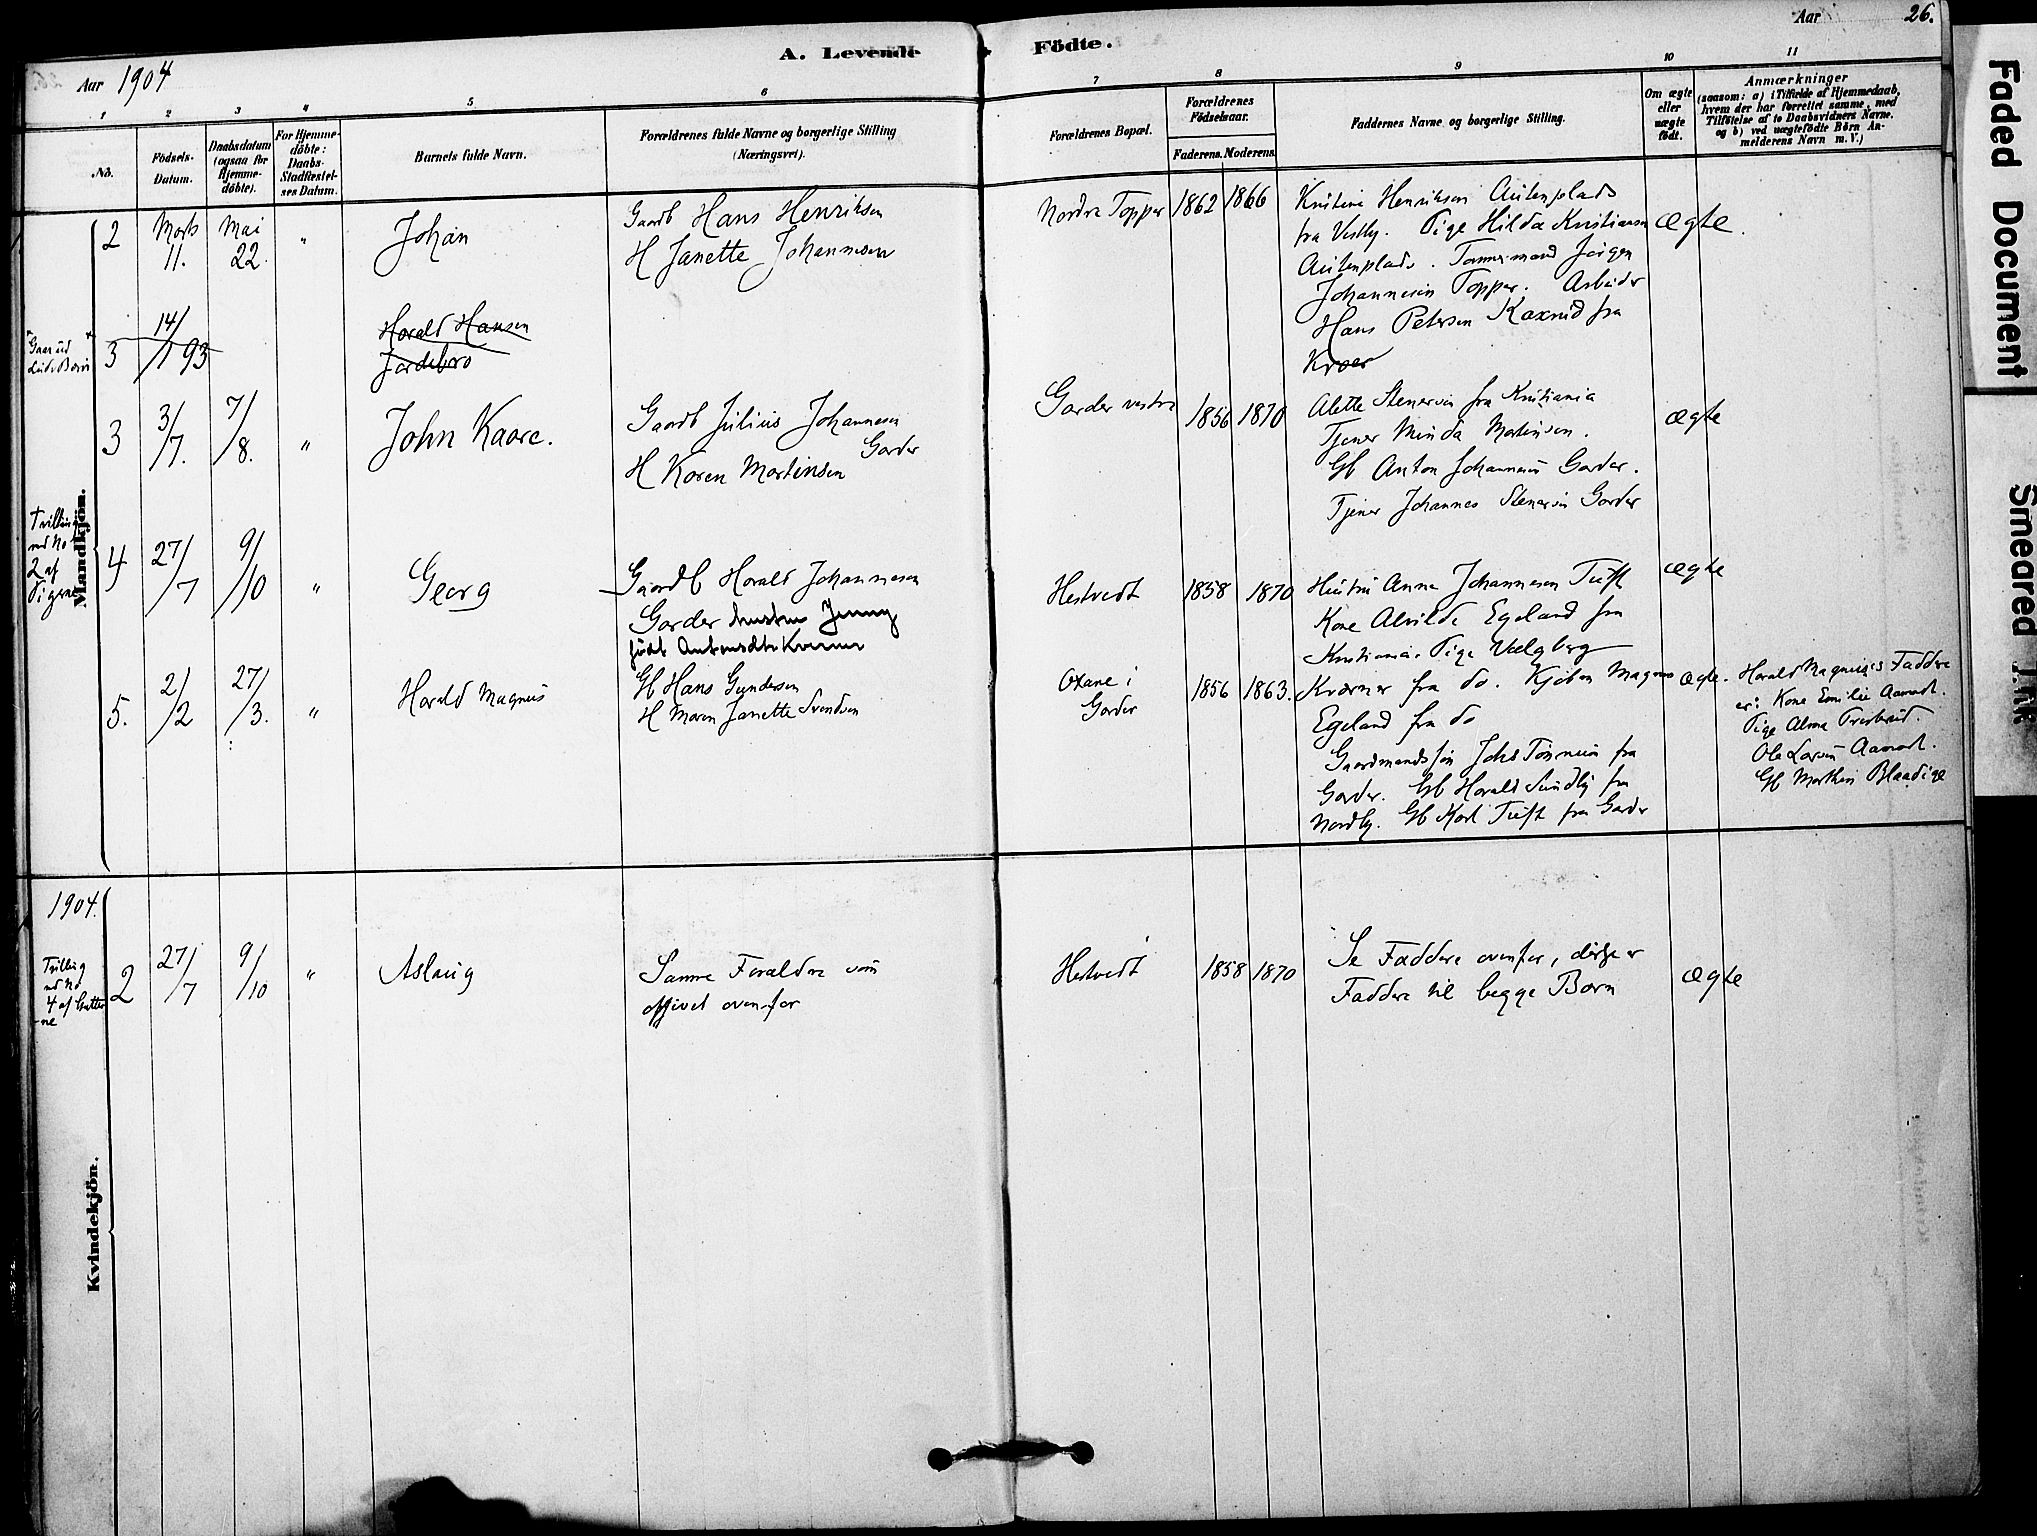 Aar 1904
A. Levende Födte.
Aar 26.
1 2 3 4 5 6 7 8 9 10 11
No.
Födsels-
Datum.
Daabsdatum
(ogsaa for
Hjemme-
döbte).
For Hjemme-
döbte:
Daabs-
Stadfæstel-
ses Datum.
Barnets fulde Navn.
Forældrenes fulde Navne og borgerlige Stilling
(Næringsvei).
Forældrenes Bopæl.
Forældrenes
Födselsaar.
Faderens. Moderens.
Faddernes Navne og borgerlige Stilling.
Om ægte
eller
uægte
födt.
Anmærkninger
(saasom: a) i Tilfælde af Hjemmedaab,
hvem der har forrettet samme, med
Tilföielse af to Daabsvidners Navne,
og b) ved uægtefödte Börn An-
melderens Navn m. V.)
Mandkjön.
2
Marts
11.
Mai
22
"
Johan
Gaardb Hans Henriksen
H Janette Johannesen
Nordre Topper
1862 1866
Kristine Henriksen Autenplads
fra Vestby. Pige Hilda Kristiansen
Autenplads. Tømmermand Jørgen
Johannesen Topper. Arbeider
Hans Petersen Kaxrud fra
Kroer
ægte.
3
14/
/1 93
Harald Hansen
3
3/
/7.
7/
/8.
"
John Kaare.
Gaardb Julius Johannesen
Garder
H Karen Martinsen
Garder vestre
1856 1870
Alette Stenersen fra Kristiania
Tjener Minda Martinsen.
Gb Anton Johannesen Garder.
Tjener Johannes Stenersen Garder
ægte
Tvilling
med No
2 af
Pigerne
4
27/
/7
9/
/10
"
Georg
Gaardb Harald Johannesen
Garder hustru Jenny
født
Hestvedt
1858 1870
Hustru Anna Johannesen Tuft
Kone Alvilde Egeland fra
Kristiania. Pige Valgberg
Kværner fra do. Kjøbm Magnus
Egeland fra do
Gaardmandssøn Johs Tønnesen fra
Garder. Gb Harald Sundby fra
Nordby. Gb Karl Tuft fra Garder
ægte
5.
2/
/2
27/
/3.
"
Harald Magnus
Gb Hans Gundersen
H Maren Janette Svendsen
Oxane i
Garder
1856 1863.
ægte.
Harald Magnus's Faddere
er: Kone Emilie Aamodt.
Pige Alma
Ole Larsen Aamodt.
Gb Mathias
1904.
Kvindekjön.
Tvilling
med No
4 af Gutter
-ne
2
27/
/7
9/
/10
"
Aslaug
Samme Forældre som
opgivet ovenfor
Hestvedt
1858 1870
Se Faddere ovenfor, disse er
Faddere til begge Børn
ægte
Faded Document
Smeared Ink